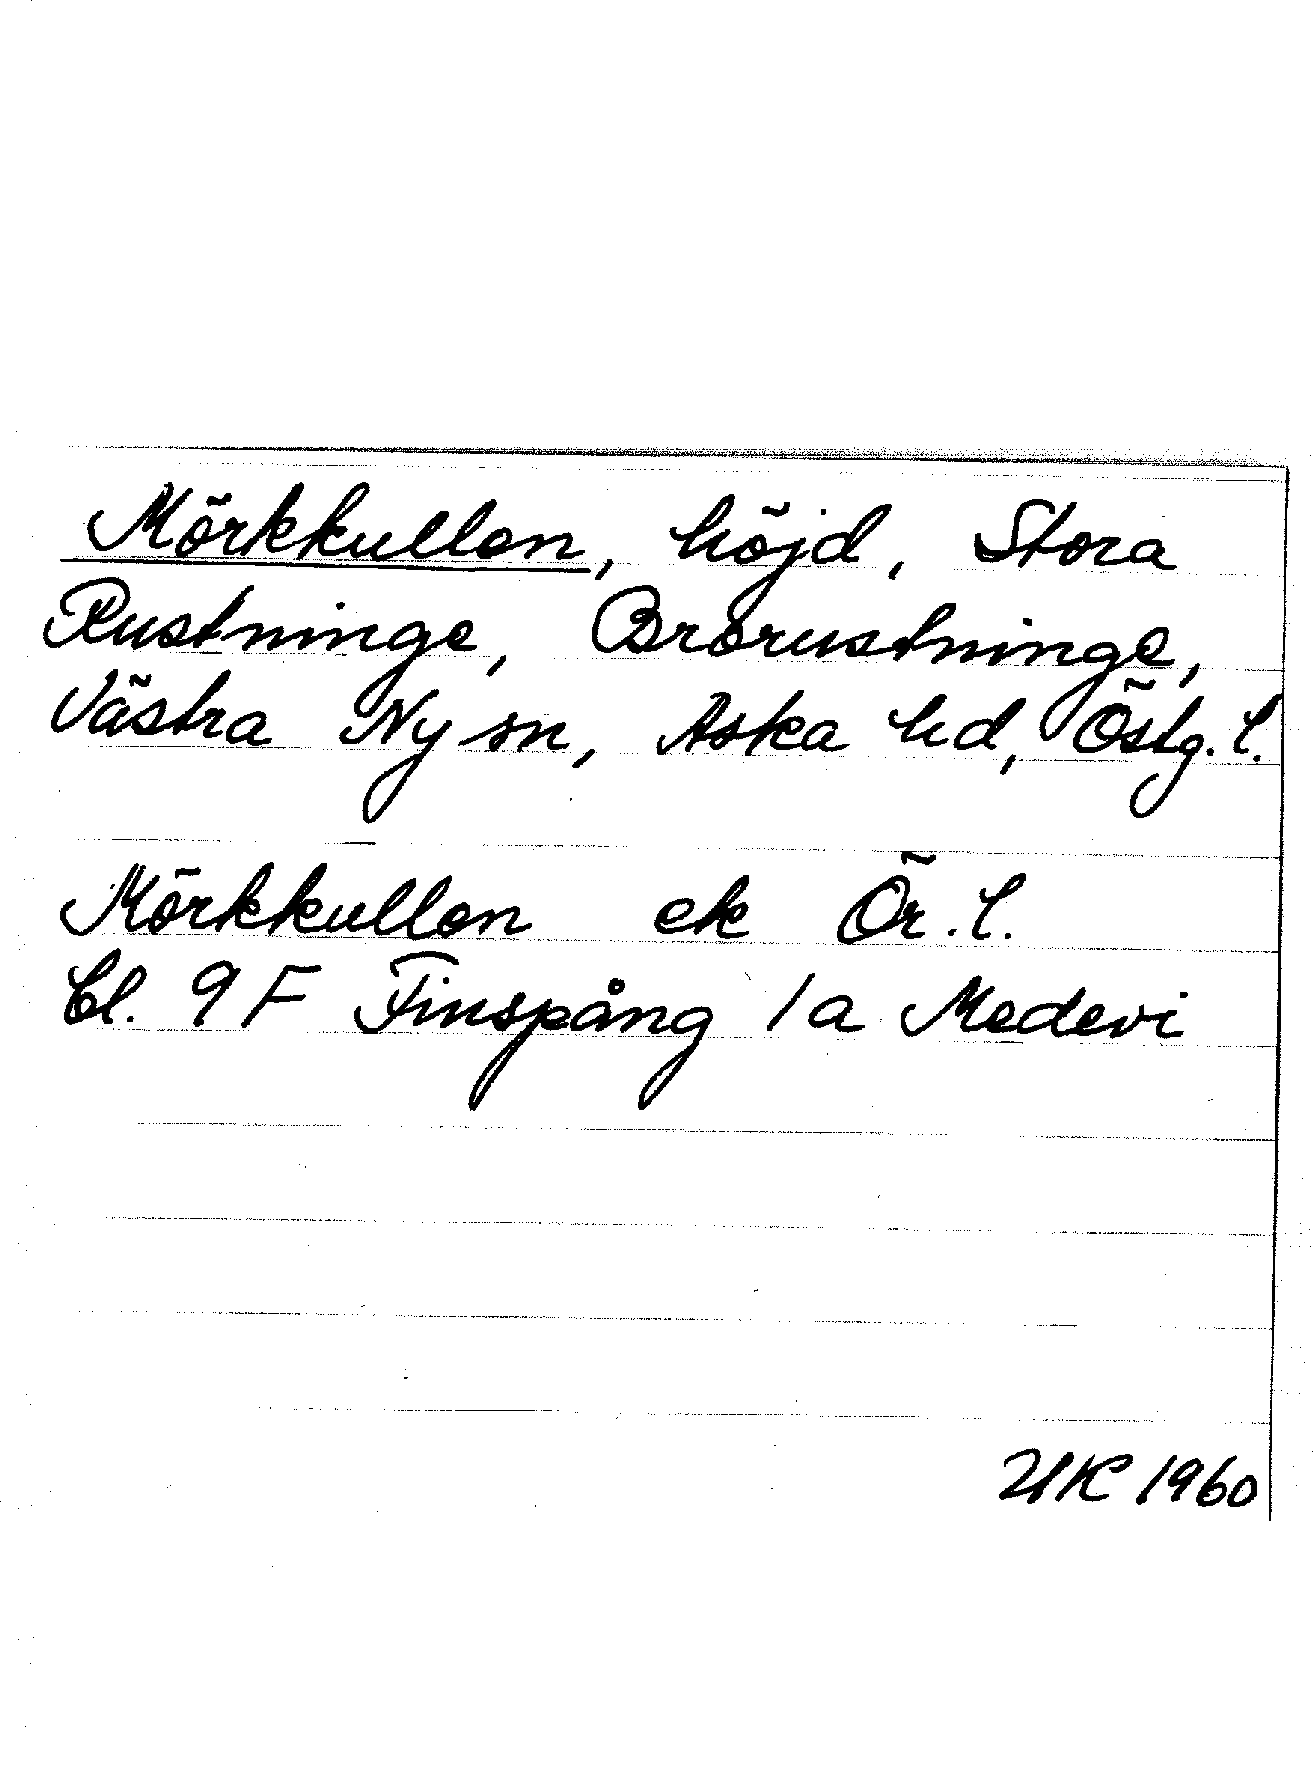 Mörkkullen, höjd, Stora
Rustninge, Brorustninge,
Västra Ny sn, Aska hd, Östg. l.
Mörkkullen ek Ör. l.
bl. 9 F Finspång 1a Medevi
UK 1960